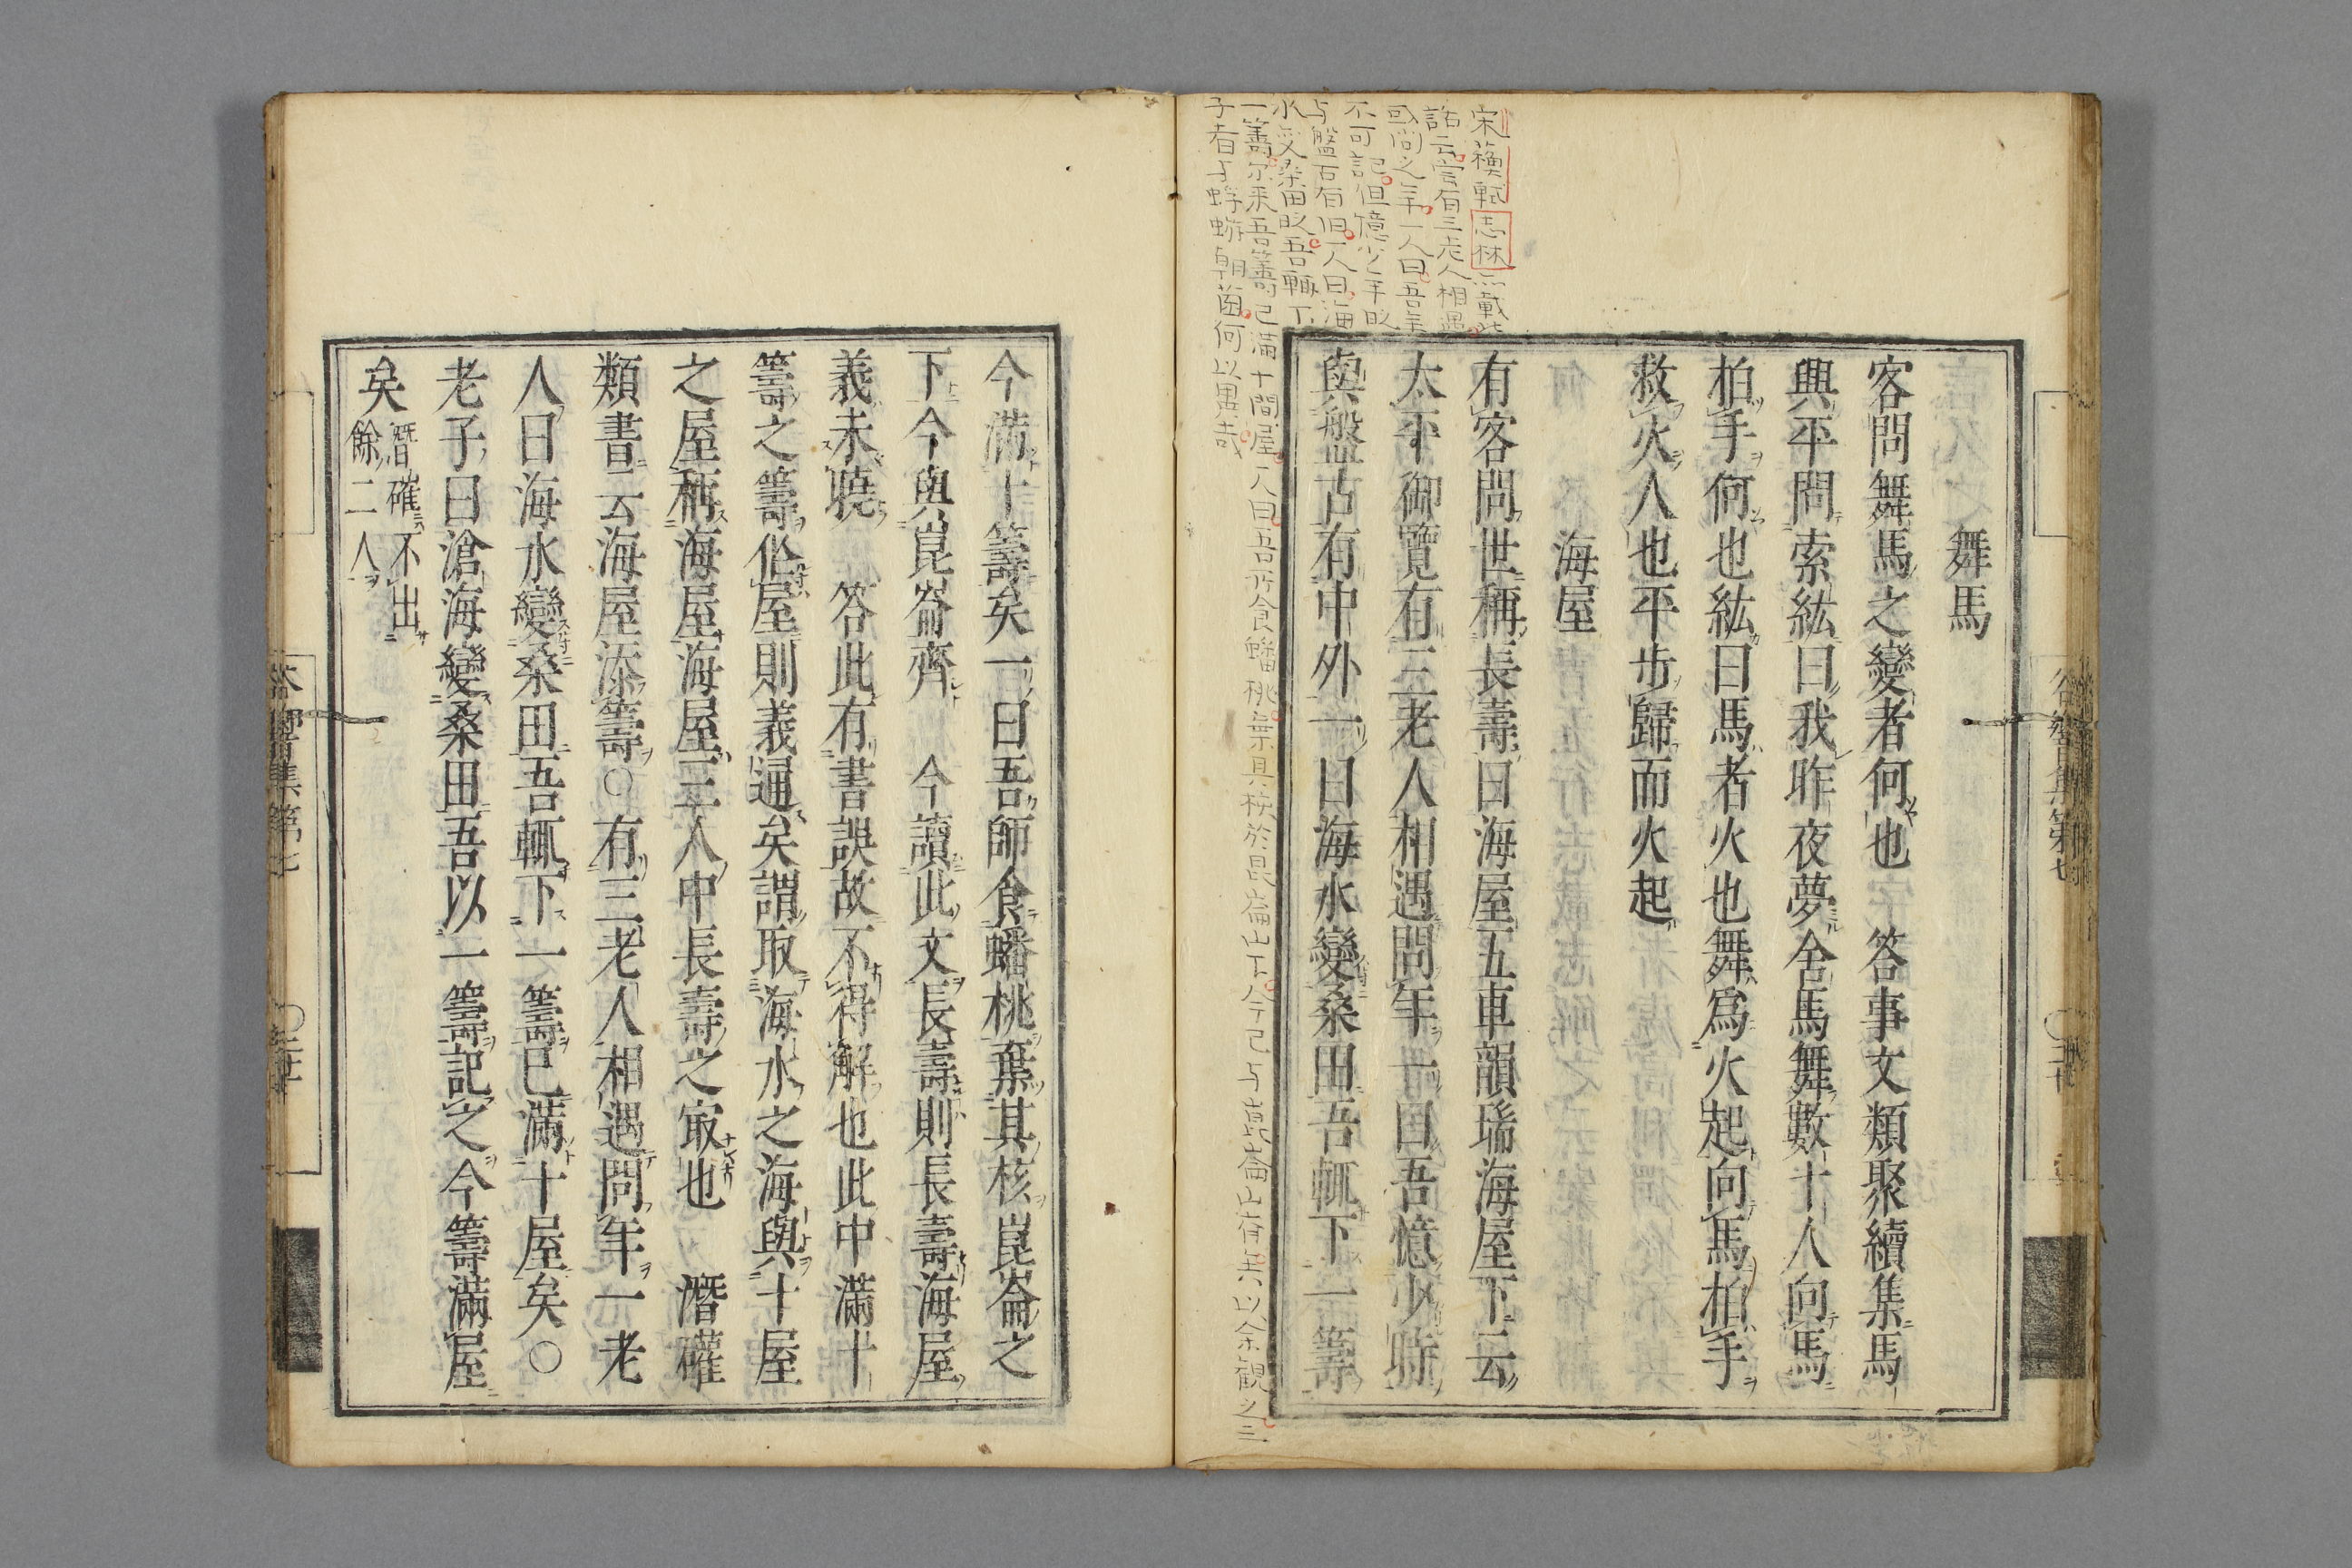 舞馬
客問舞馬之變者何也　答事文類聚續集馬
興平問索紞曰我昨夜夢舍馬舞數十人向馬
柏手何也紘曰馬者火也舞爲火起向馬柏手
救火人也平步歸而火起
海屋
有客問世稱長壽曰海屋五車韻瑞海屋下云
太平御覽有三老人相遇問年一曰吾憶少時
與盤古有中外一曰海水變桑田吾輒下一籌
宋蘓軾志林亦載此
話云嘗有三老人相遇
或問之年一人曰吾年
不可記但憶少年时
与盤古有旧一人曰海
水变桑田时吾輒下
一籌尓来吾籌已滿十間屋一人曰吾所食蟠桃棄其核於昆崙山下今已与崑崙山齊矣以余観之三
子者与蜉蝣朝菌何以異哉
今満十籌矣一曰吾師食蟠桃棄其核崑崙之
下今與崑崙齊　今讀此文長壽則長壽海屋
義未曉　答此有書誤故不得解也此中滿十
籌之籌俗屋則義通矣謂取海水之海與十屋
之屋稱海屋海屋三人中長壽之㝡也　潛確
類書云海屋添籌○有三老人相遇問年一老
人曰海水變桑田吾輒下一籌已滿十屋矣○
老子曰滄海變桑田吾以一籌記之今籌滿屋
矣潛確不出
餘二人